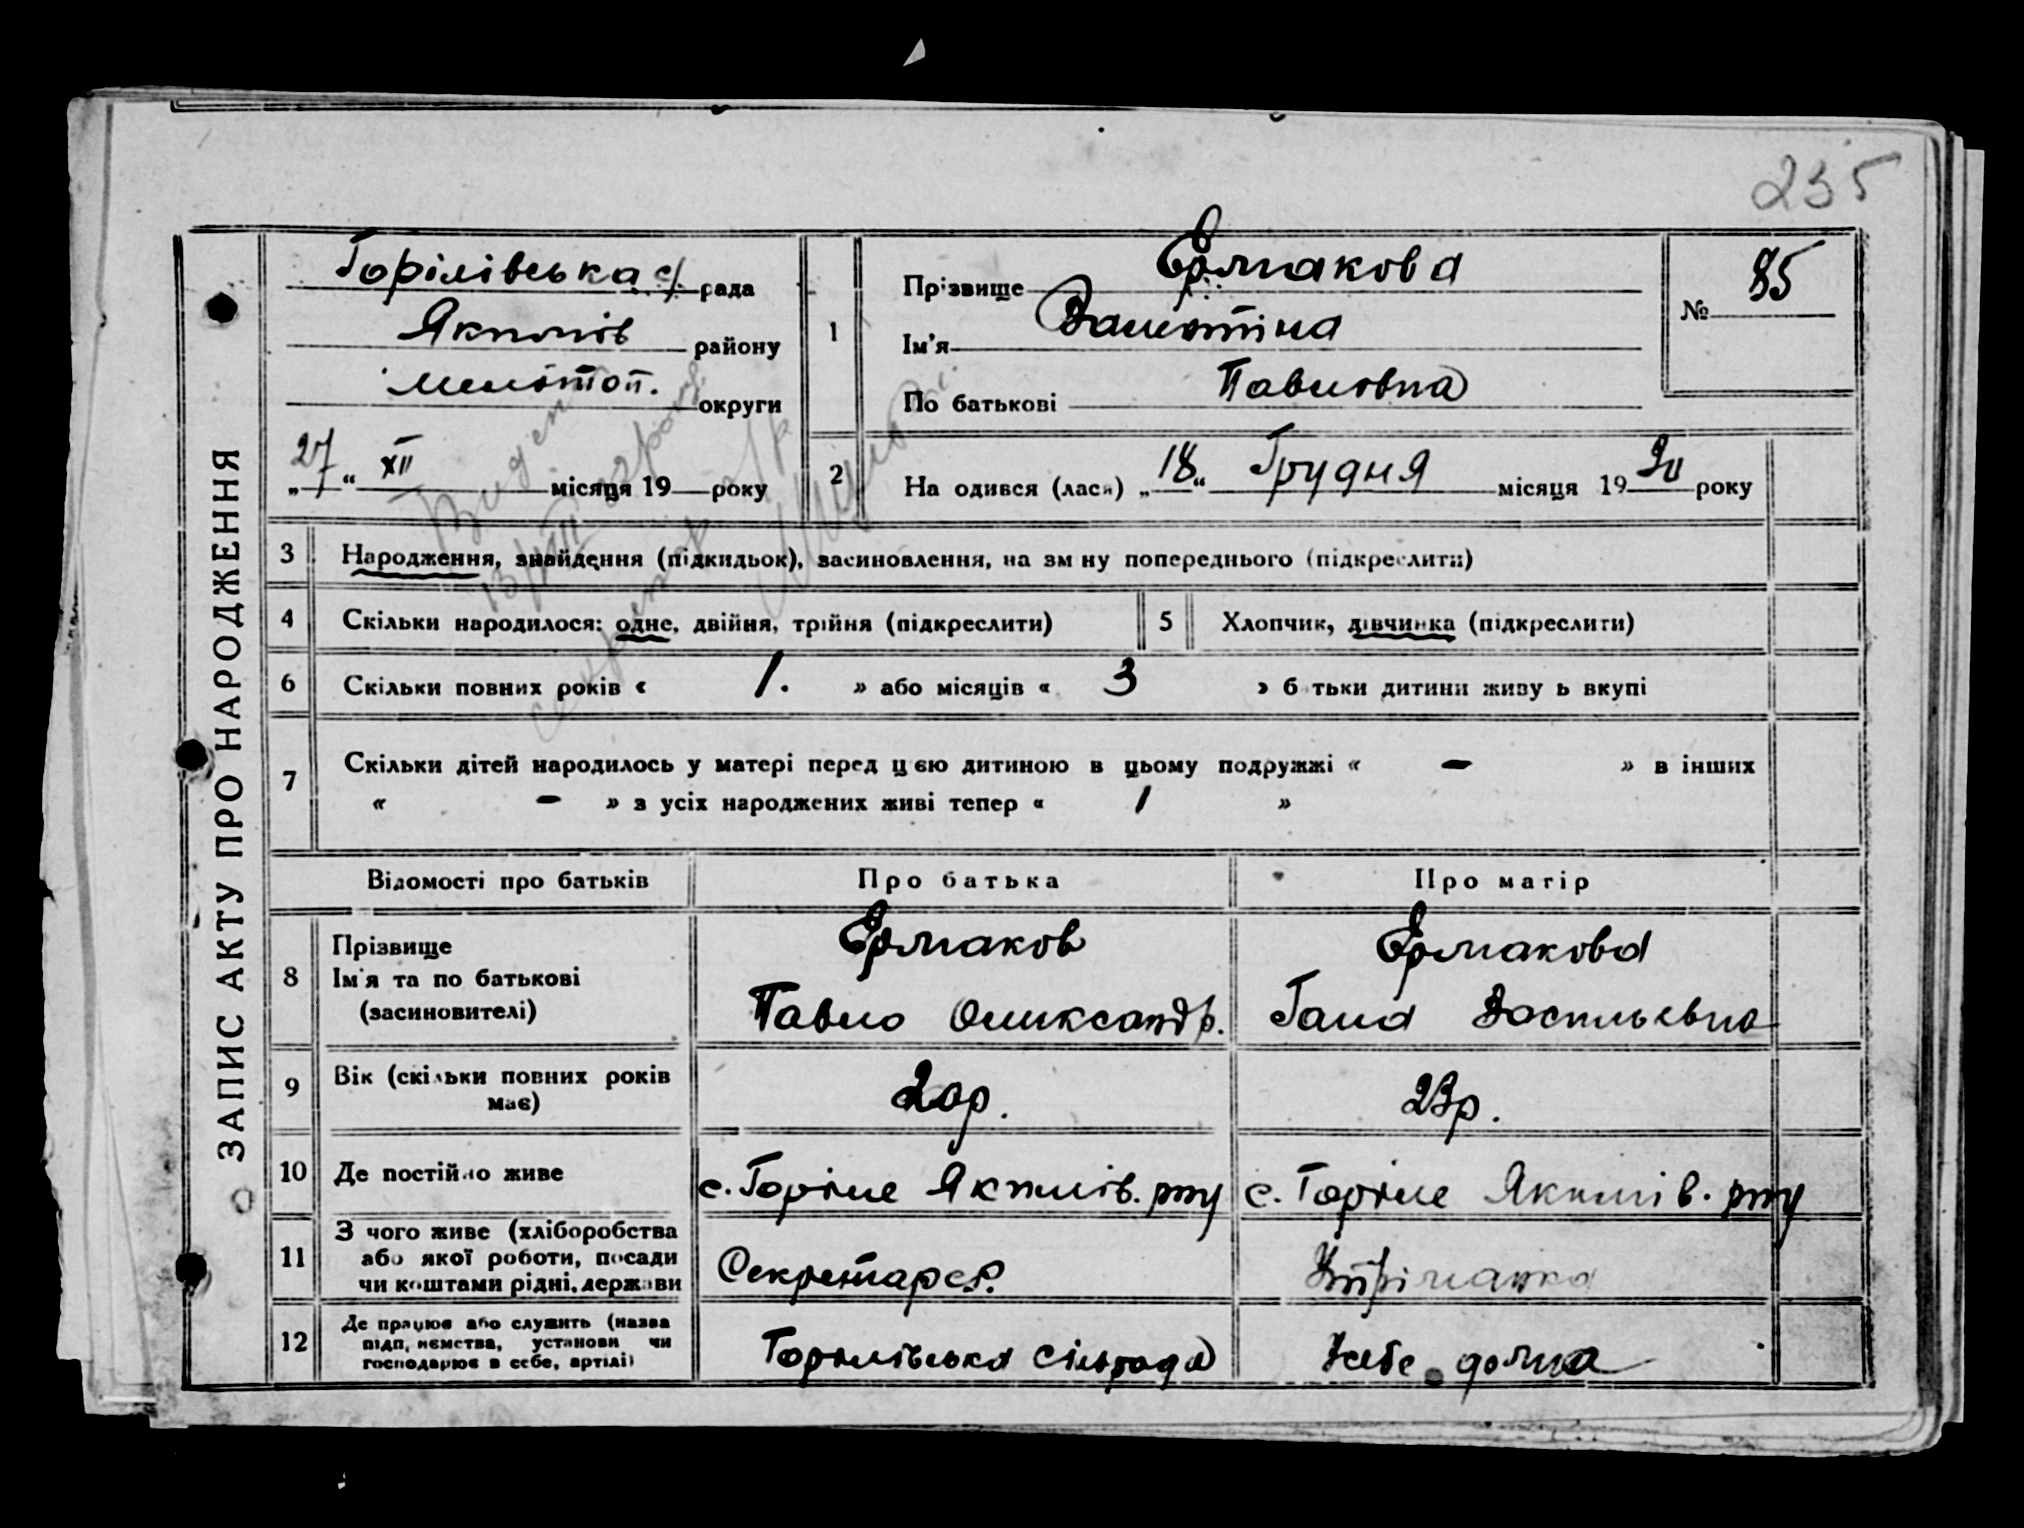 235
ЗАПИС АКТУ ПРО НАРОДЖЕННЯ
Горілівська с/ рада
Якимів району
Мелітоп. округи
„27“ XII місяця 19 року
1
Прізвище Ермакова
Ім'я Валентіна
По батькові Павловна
№ 85
2
На одився (лася) „18“ Грудня місяця 1930 року
3 Народження, знайдення (підкидьок), засиновлення, на зм ну попереднього (підкреслити)
4 Скільки народилося: одне, двійня, трійня (підкреслити) 5 Хлопчик, дівчинка (підкреслити)
6 Скільки повних років « 1. » або місяців « 3 » б тьки дитини живу ь вкупі
7 Скільки дітей народилось у матері перед цією дитиною в цьому подружжі « – » в інших
« – » з усіх народжених живі тепер « 1 »
Відомості про батьків Про батька Про матір
8 Прізвище
Ім'я та по батькові
(засиновителі)
Ермаков
Павло Олександр.
Ермакова
Ганна Васильевна
9 Вік (скільки повних років
має)
20р.
23р.
10 Де постійно живе
с. Горіле Якимів. р-ну
с. Горіле Якимів. р-ну
11 З чого живе (хліборобства
або якої роботи, посади
чи коштами рідні, держави
Секретар с.р.
Утріманка
12 Де працює або служить (назва
підп, иємства, установи чи
господарює в себе, артілі)
Горілівська сільрада
дома